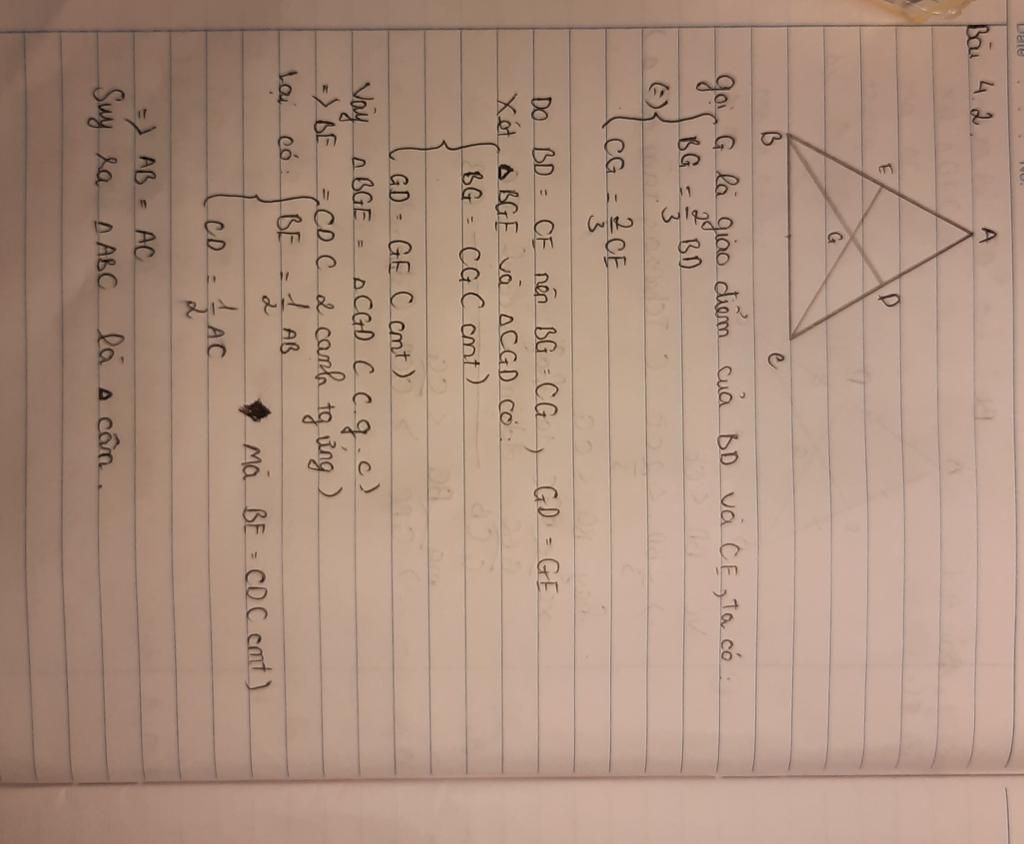 Date
No.
Bài 4.2.
A
E
D
G
B
C
gọi G là giao điểm của BD và CE, ta có:
(=) { BG = 2/3 BD
CG = 2/3 CE
Do BD = CE nên BG = CG, GD = GE
Xét △ BGE và △CGD có:
{ BG = CG C cmt)
GD = GE C cmt)
Vậy △BGE = △CGD C c.g.c)
=) BE = CD C 2 canh tg ứng)
Lại có: { BE = 1/2 AB
CD = 1/2 AC
Mà BE = CD C cmt)
=) AB = AC
Suy ra △ABC là △ cân.